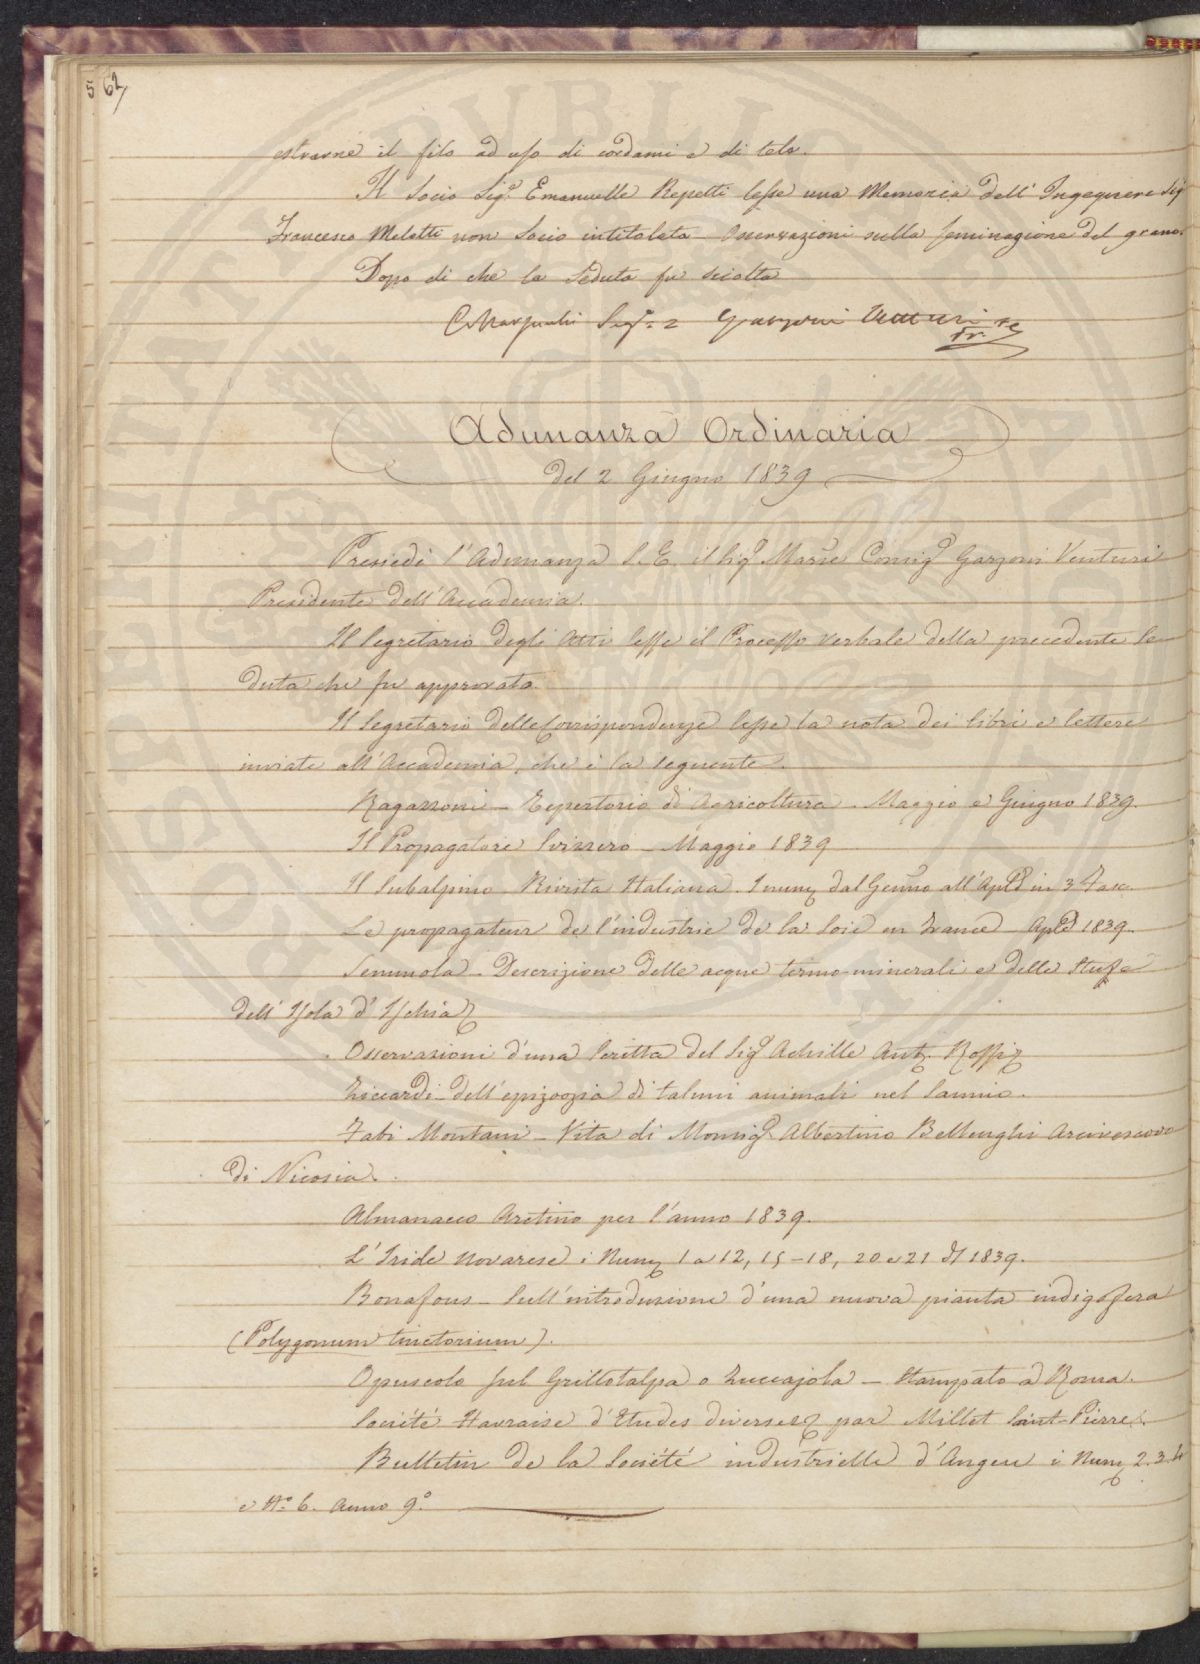 562
estrarne il filo ad uso di cordami e di tele.
Il Socio Sig.e Emanuelle Repetti lesse una Memoria dell'Ingegnere Sig.
Francesco Meletti non Socio intitolata Osservazioni sulla seminagione del grano.
Dopo di che la Seduta fu sciolta
Seg.o 2 Garzoni Venturi
Adunanza Ordinaria
del 2 Giugno 1839
Presiedè l'Adunanza S. E. il Sig.e March.e Consig.e Garzoni Venturi
Presidente dell'Accademia.
Il Segretario degli Atti lesse il Processo verbale della precedente Se
duta che fu approvato.
Il Segretario delle Corrispondenze lesse la nota dei libri e lettere
inviate all'Accademia, che è la seguente.
Ragazzoni - Repertorio di Agricoltura - Maggio e Giugno 1839.
Il Propagatore Svizzero - Maggio 1839
Il Subalpino Rivista Italiana. I num. dal Gen.o all'Aple in 3 Fasc.
Le propagateur de l'industrie de la Soie en France - Aple 1839.
Semmola - Descrizione delle acque termo-minerali e delle Stufe
dell'Isola d'Ischia
Osservazioni d'una Scritta del Sig.e Achille Ant. Rossi
Liccardi - dell'epizoozia di taluni animali nel Sannio.
Fabi Montani - Vita di Monsig.e Albertino Bellenghi Arcivescovo
di Nicosia.
Almanacco Aretino per l'anno 1839.
L'Iride Novarese i Num. 1 a 12, 15-18, 20 e 21 del 1839.
Bonafous - Sull'introduzione d'una nuova pianta indigofera
(Polygonum tinctorium).
Opuscolo sul Grillotalpa o Zuccajola - Stampato a Roma.
Société Havraise d'Etudes diverses par Millet Saint-Pierre.
Bulletin de la Société industrielle d'Angeu i Num. 2. 3. 4
e N.o 6. Anno 9.o